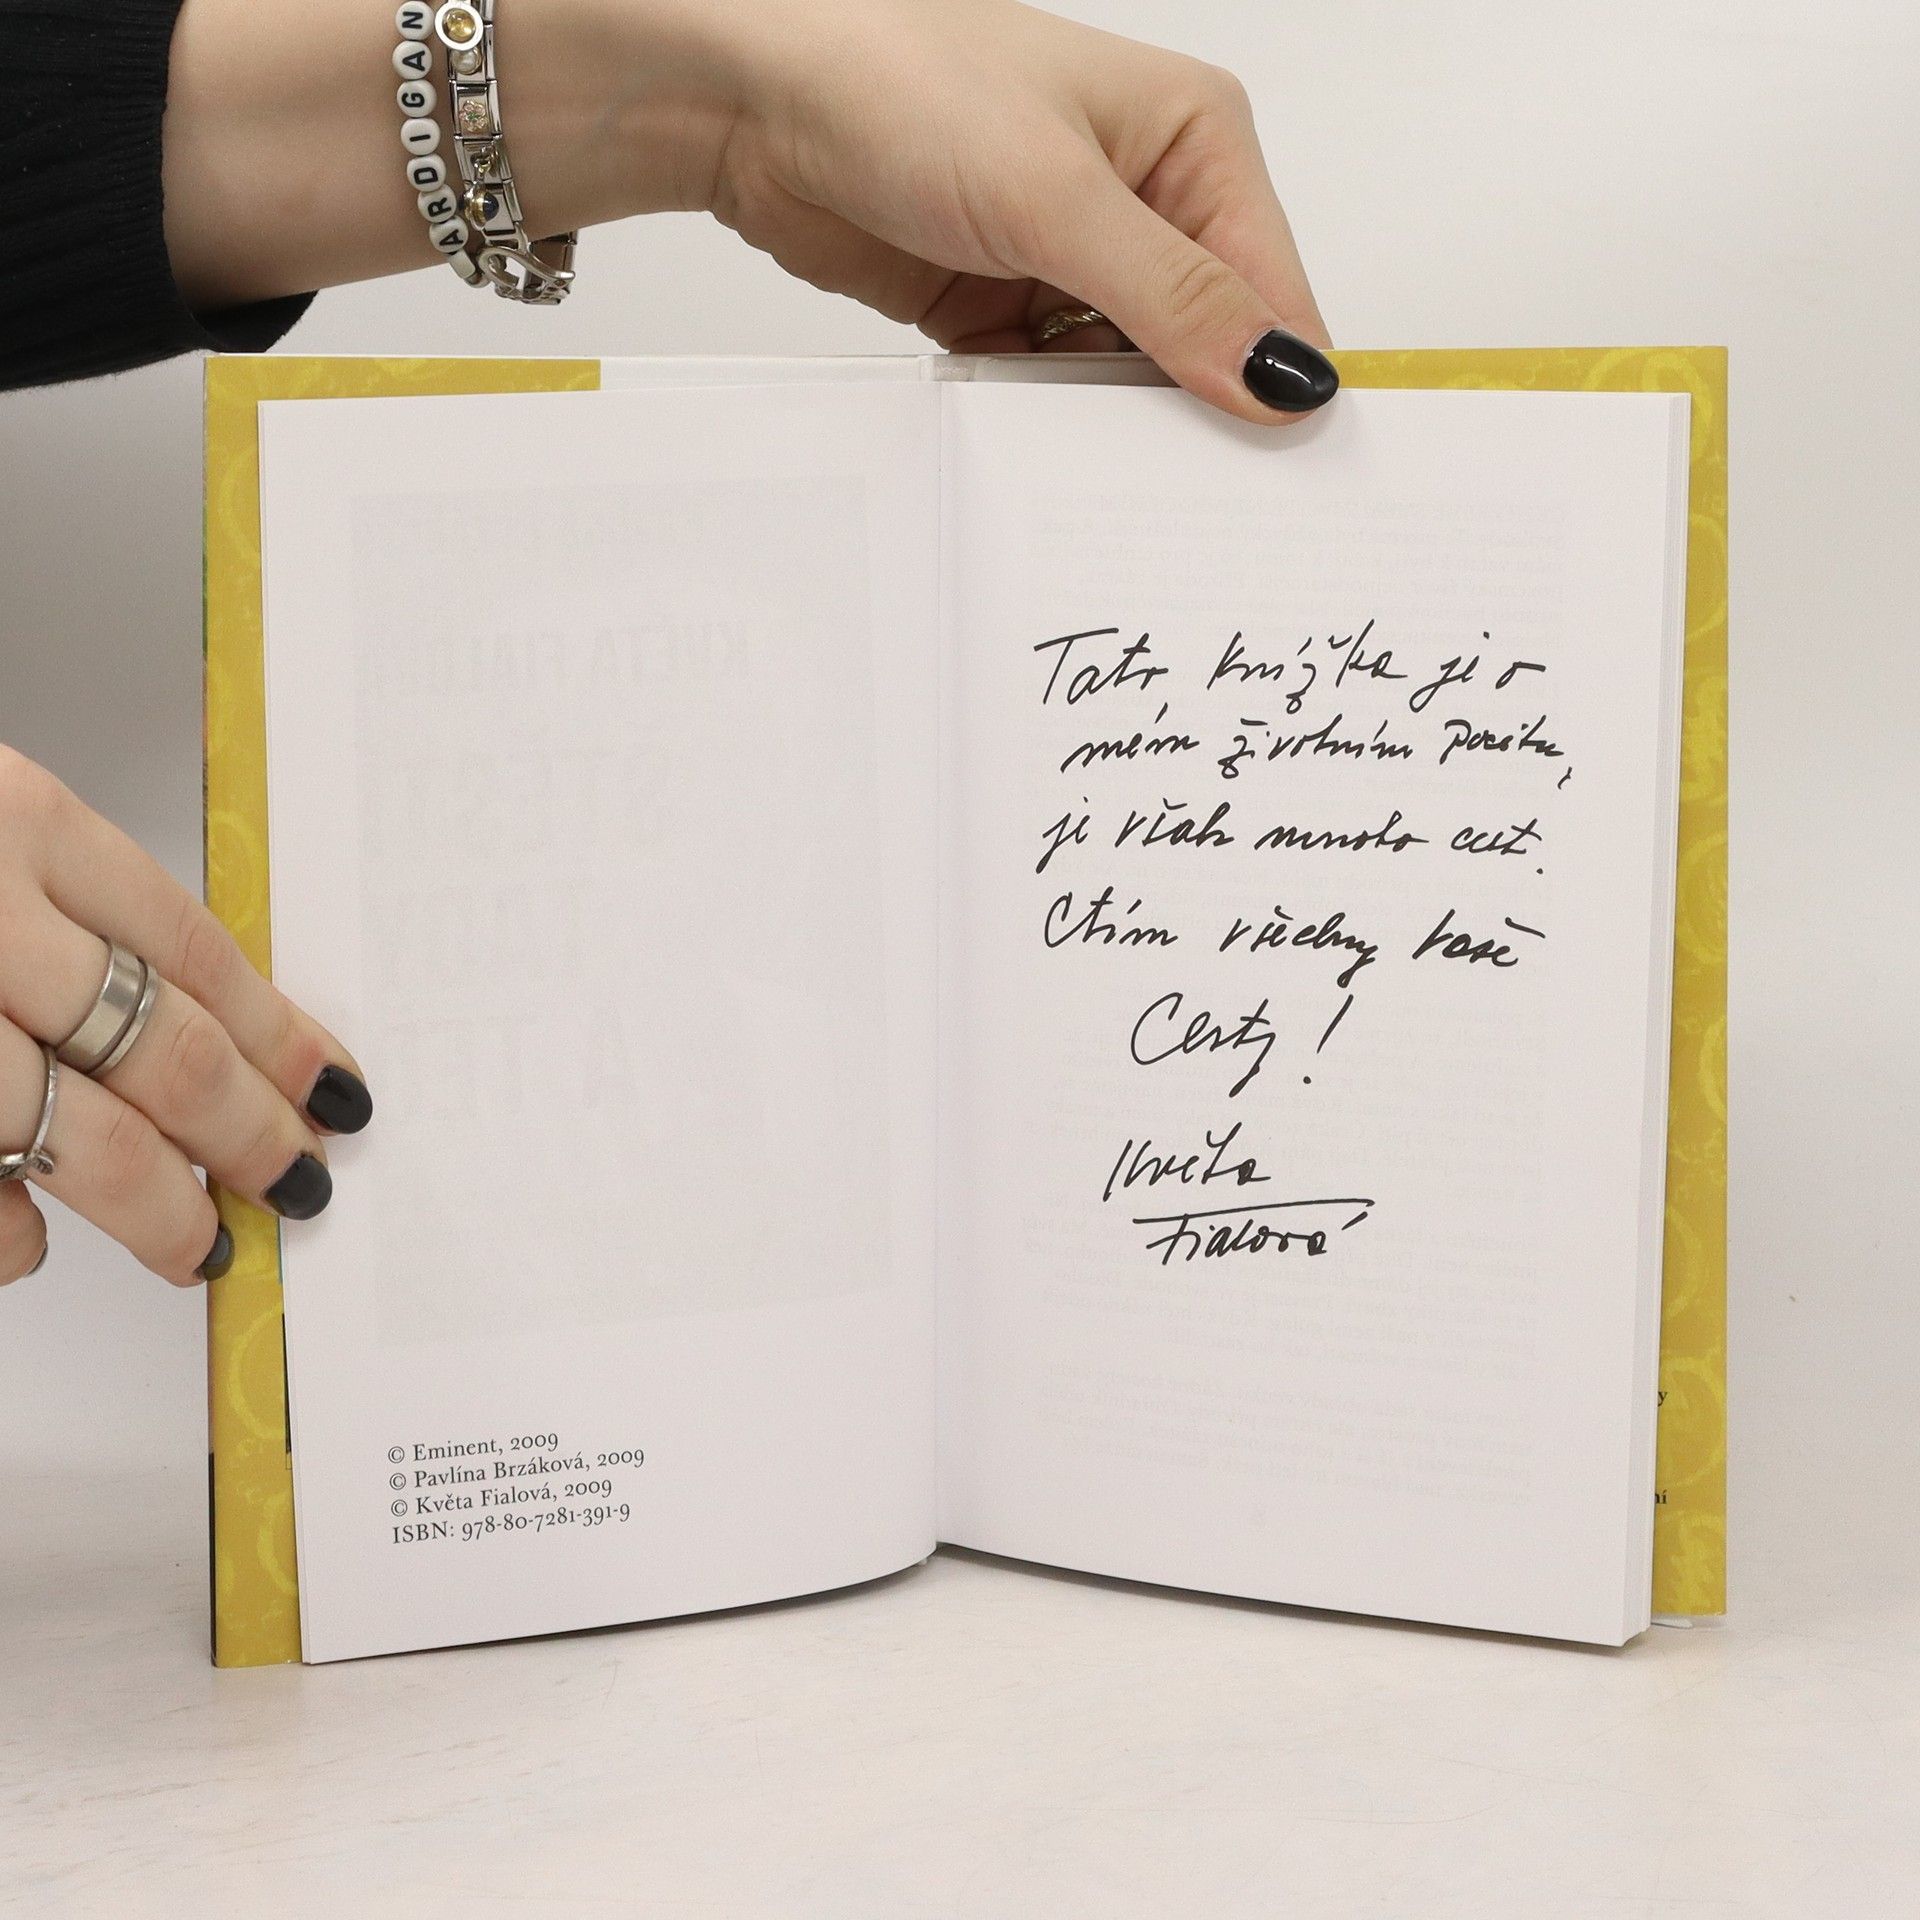 ARDIGAN
© Eminent, 2009
© Pavlína Brzáková, 2009
© Květa Fialová, 2009
ISBN: 978-80-7281-391-9
Tato knížka je o
mém životním pocitu,
je však mnoho cest.
Ctím všechny vaše
Cesty!
Květa
Fialová
y
ní